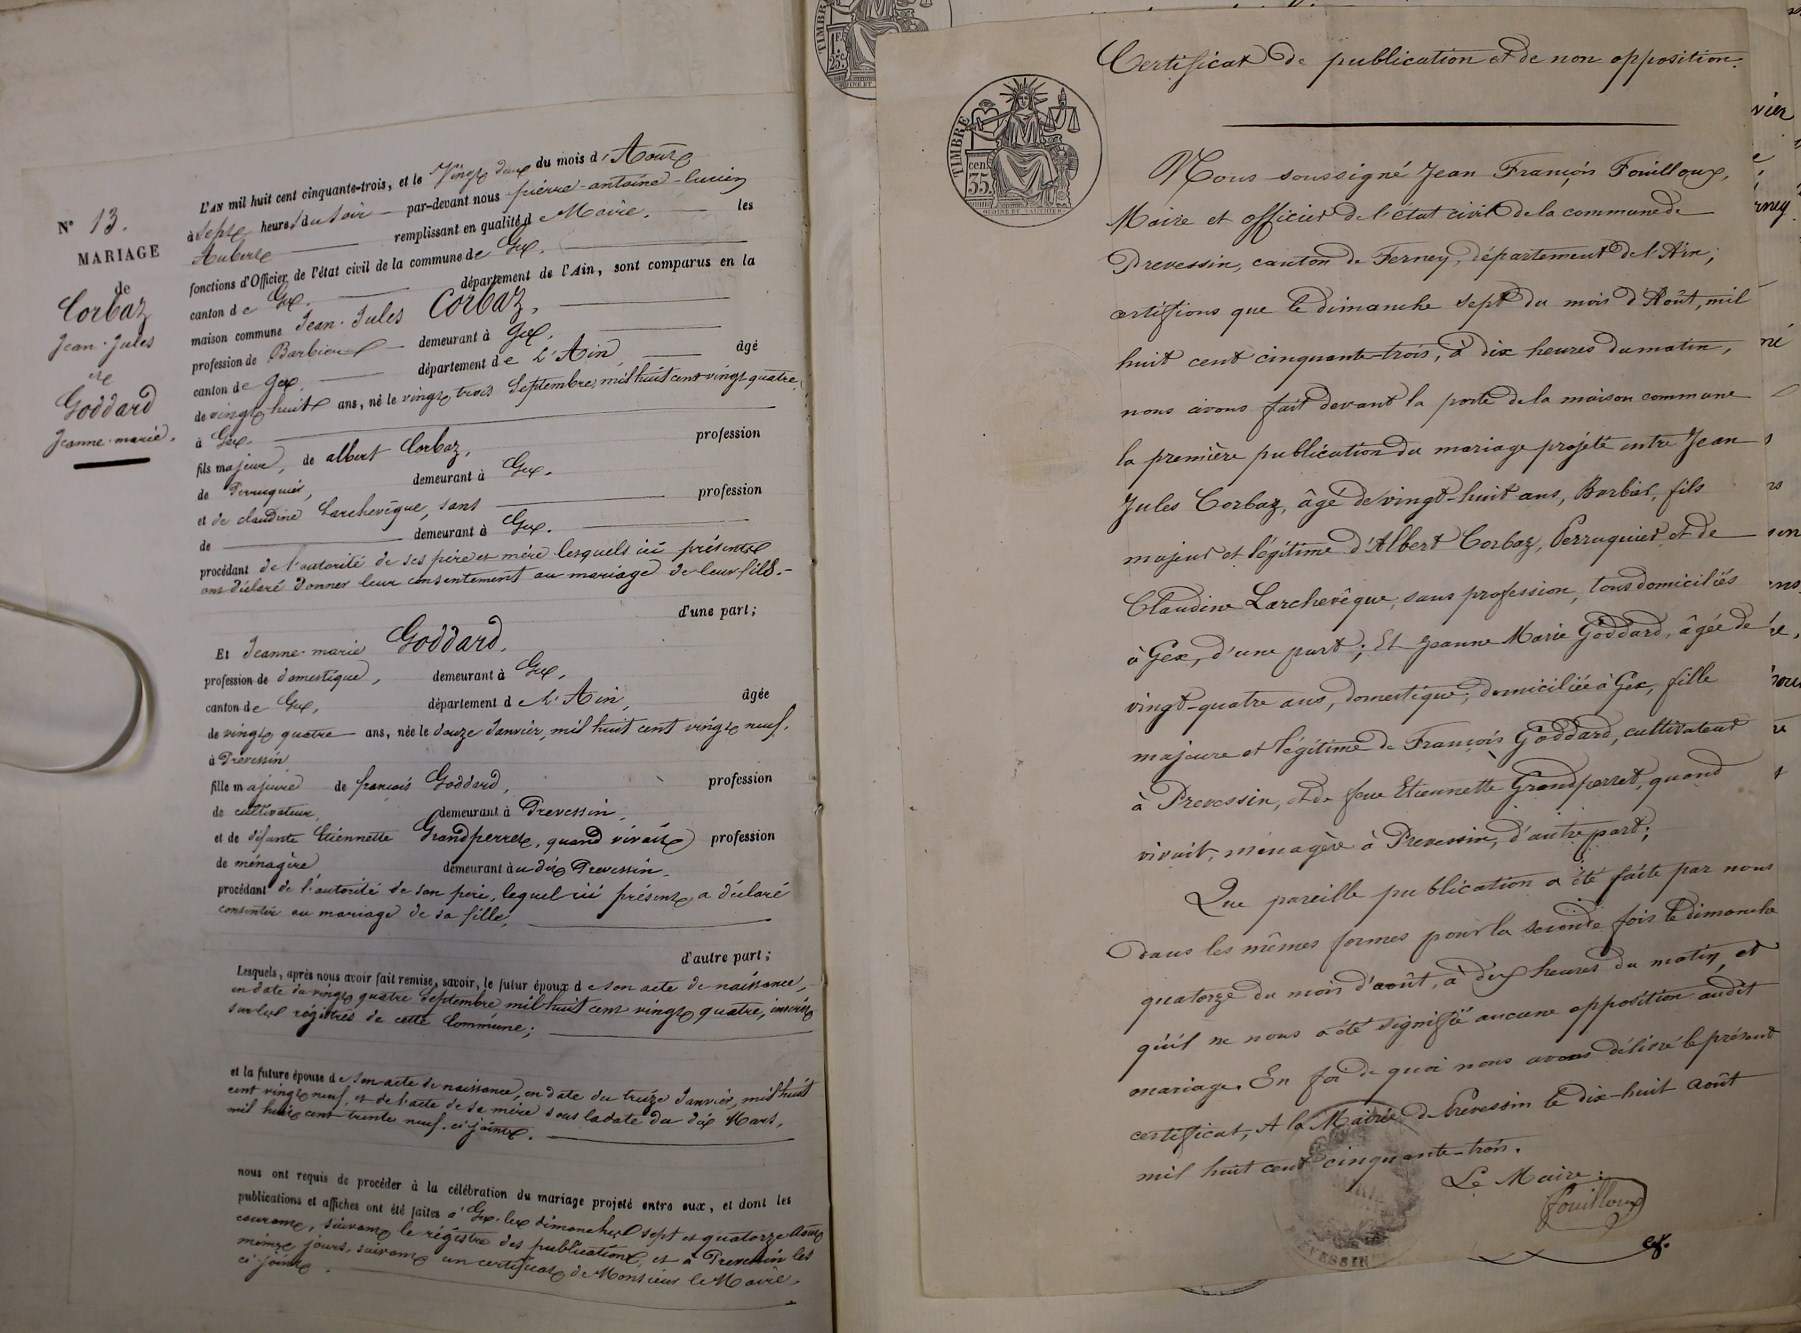 N° 13.
MARIAGE
de
Corbaz
Jean-Jules
et
Goddard
Jeanne-marie.
L'AN mil huit cent cinquante-trois, et le Vingt deux du mois d'Août
à Sept heures du soir par-devant nous pierre-antoine-lucien
Aubert remplissant en qualité de Maire. les
fonctions d'Officier de l'état civil de la commune de Gex.
canton de Gex. département de l'Ain, sont comparus en la
maison commune Jean-Jules Corbaz,
profession de Barbier demeurant à Gex,
canton de Gex, département de L'Ain âgé
de vingt huit ans, né le vingt trois Septembre, mil huit cent vingt quatre
à Gex.
fils majeur, de albert Corbaz, profession
de Perruquier, demeurant à Gex.
et de claudine Larchevêque, sans profession
de demeurant à Gex.
procédant de l'autorité de ses père et mère lesquels ici présents
ont déclaré donner leur consentement au mariage de leur fils.-
d'une part;
Et Jeanne-marie Goddard.
profession de domestique, demeurant à Gex,
canton de Gex, département d L'Ain, âgée
de vingt quatre ans, née le douze Janvier, mil huit cent vingt neuf.
à Prévessin
fille majeure de françois Goddard, profession
de cultivateur, demeurant à Prevessin,
et de défunte Etiennette Grandperret, quand vivait profession
de ménagère demeurant au dit Prevessin.
procédant de l'autorité de son père, lequel ici présent a déclaré
consentir au mariage de sa fille,
d'autre part;
Lesquels, après nous avoir fait remise, savoir, le futur époux de son acte de naissance,
en date du vingt quatre Septembre mil huit cent vingt quatre, inscrit
sur les régistres de cette Commune;
et la future épouse de son acte de naissance, en date du treize Janvier, mil huit
cent vingt neuf, et de l'acte de sa mère sous la date du dix Mars,
mil huit cent trente neuf. ci joints.
nous ont requis de procéder à la célébration du mariage projeté entre eux, et dont les
publications et affiches ont été faites à Gex les dimanches sept et quatorze Août
courant, suivant le régistre des publications, et à Prevessin les
mêmes jours, suivant un certificat de Monsieur le Maire,
ci joint.
TIMBRE
1 F.
25 c.
Certificat de publication et de non opposition.
TIMBRE
cent.
35.
Nous soussigné Jean François Fouilloux,
Maire et officier de l'état civil de la commune de
Prevessin, canton de Ferney, département de l'Ain;
certifions que le dimanche sept du mois d'Août, mil
huit cent cinquante-trois, à dix heures du matin,
nous avons fait devant la porte de la maison commune
la première publication du mariage projeté entre Jean
Jules Corbaz, âgé de vingt-huit ans, Barbier, fils
majeur et légitime d'Albert Corbaz, Perruquier et de
Claudine Larchevêque, sans profession, tous domiciliés
à Gex, d'une part; Et Jeanne Marie Goddard, âgée de
vingt-quatre ans, domestique, domiciliée à Gex, fille
majeure et légitime de François Goddard, cultivateur
à Prevessin, et de feue Etiennette Grandperret, quand
vivait, ménagère à Prevessin, d'autre part;
Que pareille publication a été faite par nous
dans les mêmes formes pour la seconde fois le dimanche
quatorze du mois d'août, à dix heures du matin, et
qu'il ne nous a été signifié aucune opposition audit
mariage. En foi de quoi nous avons délivré le présent
certificat, A la Mairie de Prevessin le dix-huit août
mil huit cent cinquante-trois.
Le Maire:
Fouilloux